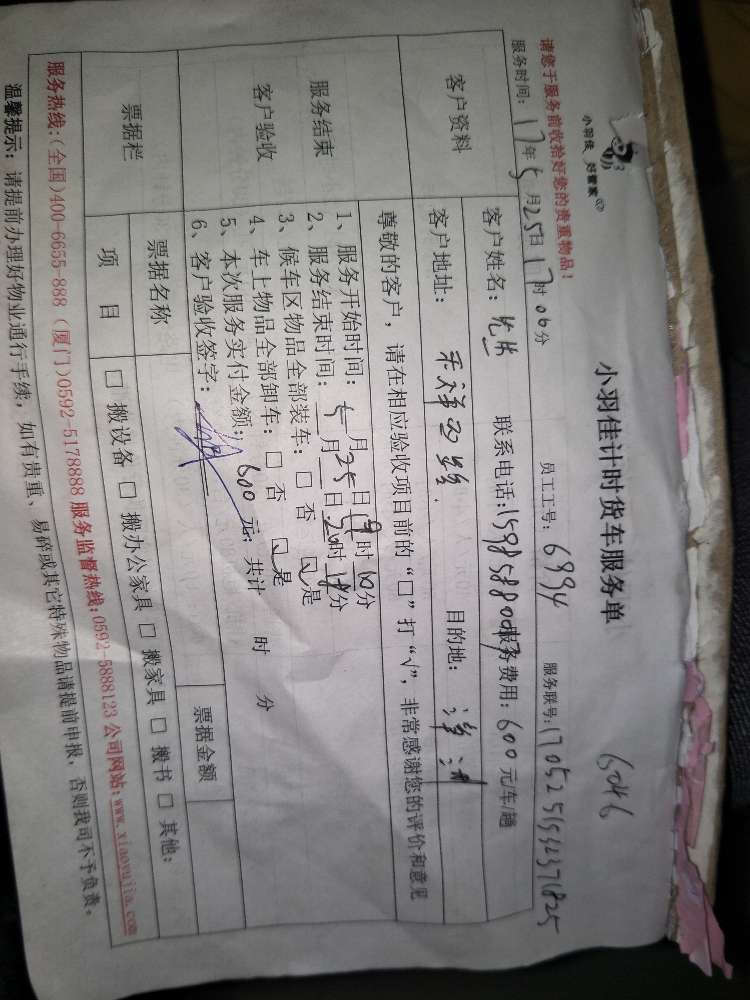 小羽佳 好管家
小羽佳计时货车服务单
6046
请您于服务前收拾好您的贵重物品！
服务时间：17年5月25日17时06分 员工工号：6994 服务联号：
客户资料
客户姓名： 联系电话： 服务费用：600元/车/趟
客户地址： 目的地：
尊敬的客户，请在相应验收项目前的“□”打“√”，非常感谢您的评价和意见
服务结束
客户验收
1、服务开始时间：5月25日 时10分
2、服务结束时间： 月 日 时18分
3、候车区物品全部装车：□ 否 ☑ 是
4、车上物品全部卸车：□ 否 ☑ 是
5、本次服务实付金额：600元；共计 时 分
6、客户验收签字：
票据栏
票据名称 票据金额
项 目 □ 搬设备 □ 搬办公家具 □ 搬家具 □ 搬书 □ 其他：
服务热线：(全国)400-6655-888 (厦门)0592-5178888 服务监督热线：0592-5888123 公司网站：www.xiaoyujia.com
温馨提示：请提前办理好物业通行手续，如有贵重、易碎或其它特殊物品请提前申报，否则我司不予负责。